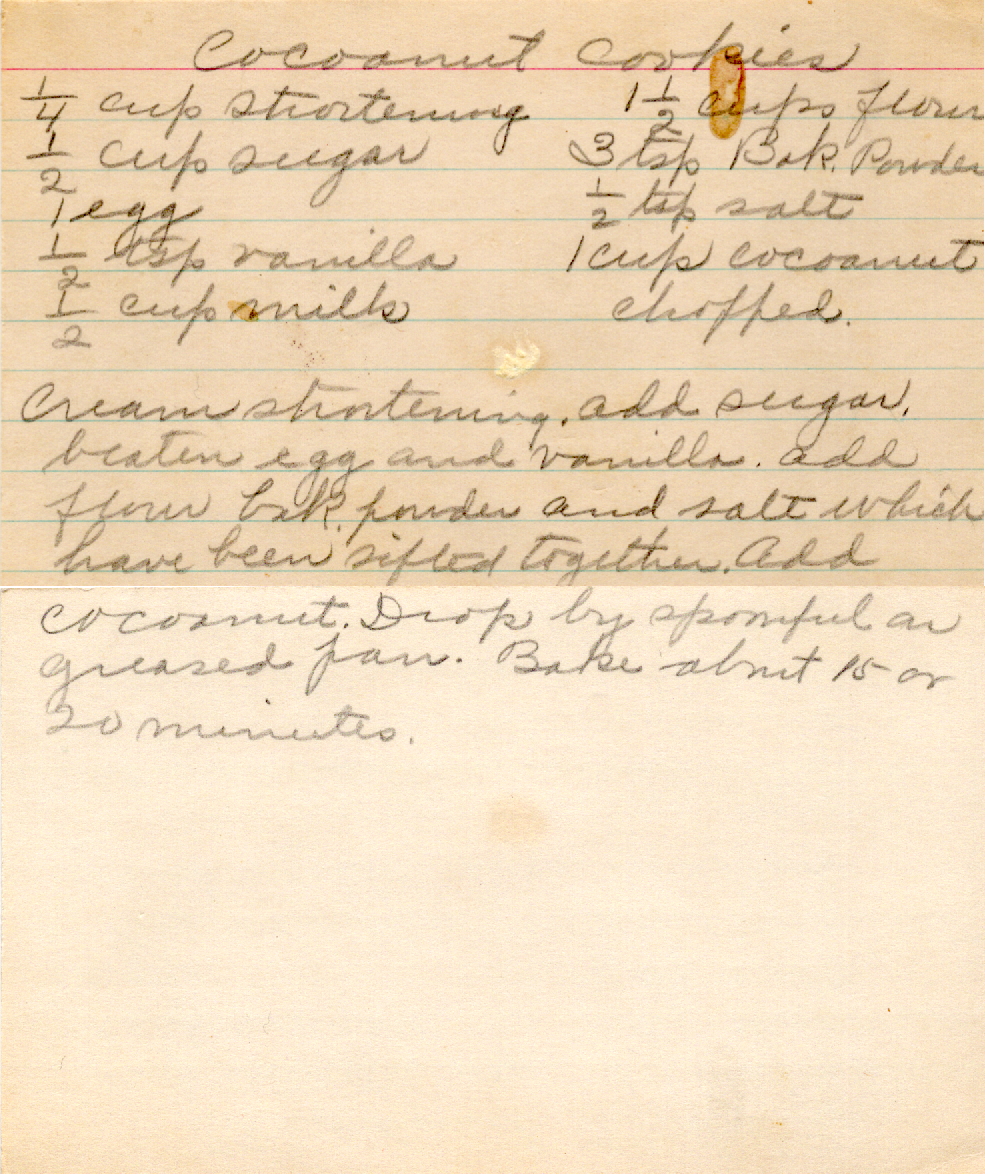 Cocoanut Cookies
1/4 cup shortening 1 1/2 cups flour
1/2 cup sugar 3 tsp Bak. Powder
1 egg 1/2 tsp salt
1/2 tsp vanilla 1 cup cocoanut
1/2 cup milk chopped.
Cream shortening. add sugar,
beaten egg and vanilla. add
flour bak. powder and salt which
have been sifted together. Add
cocoanut. Drop by spoonful on
greased pan. Bake about 15 or
20 minutes.